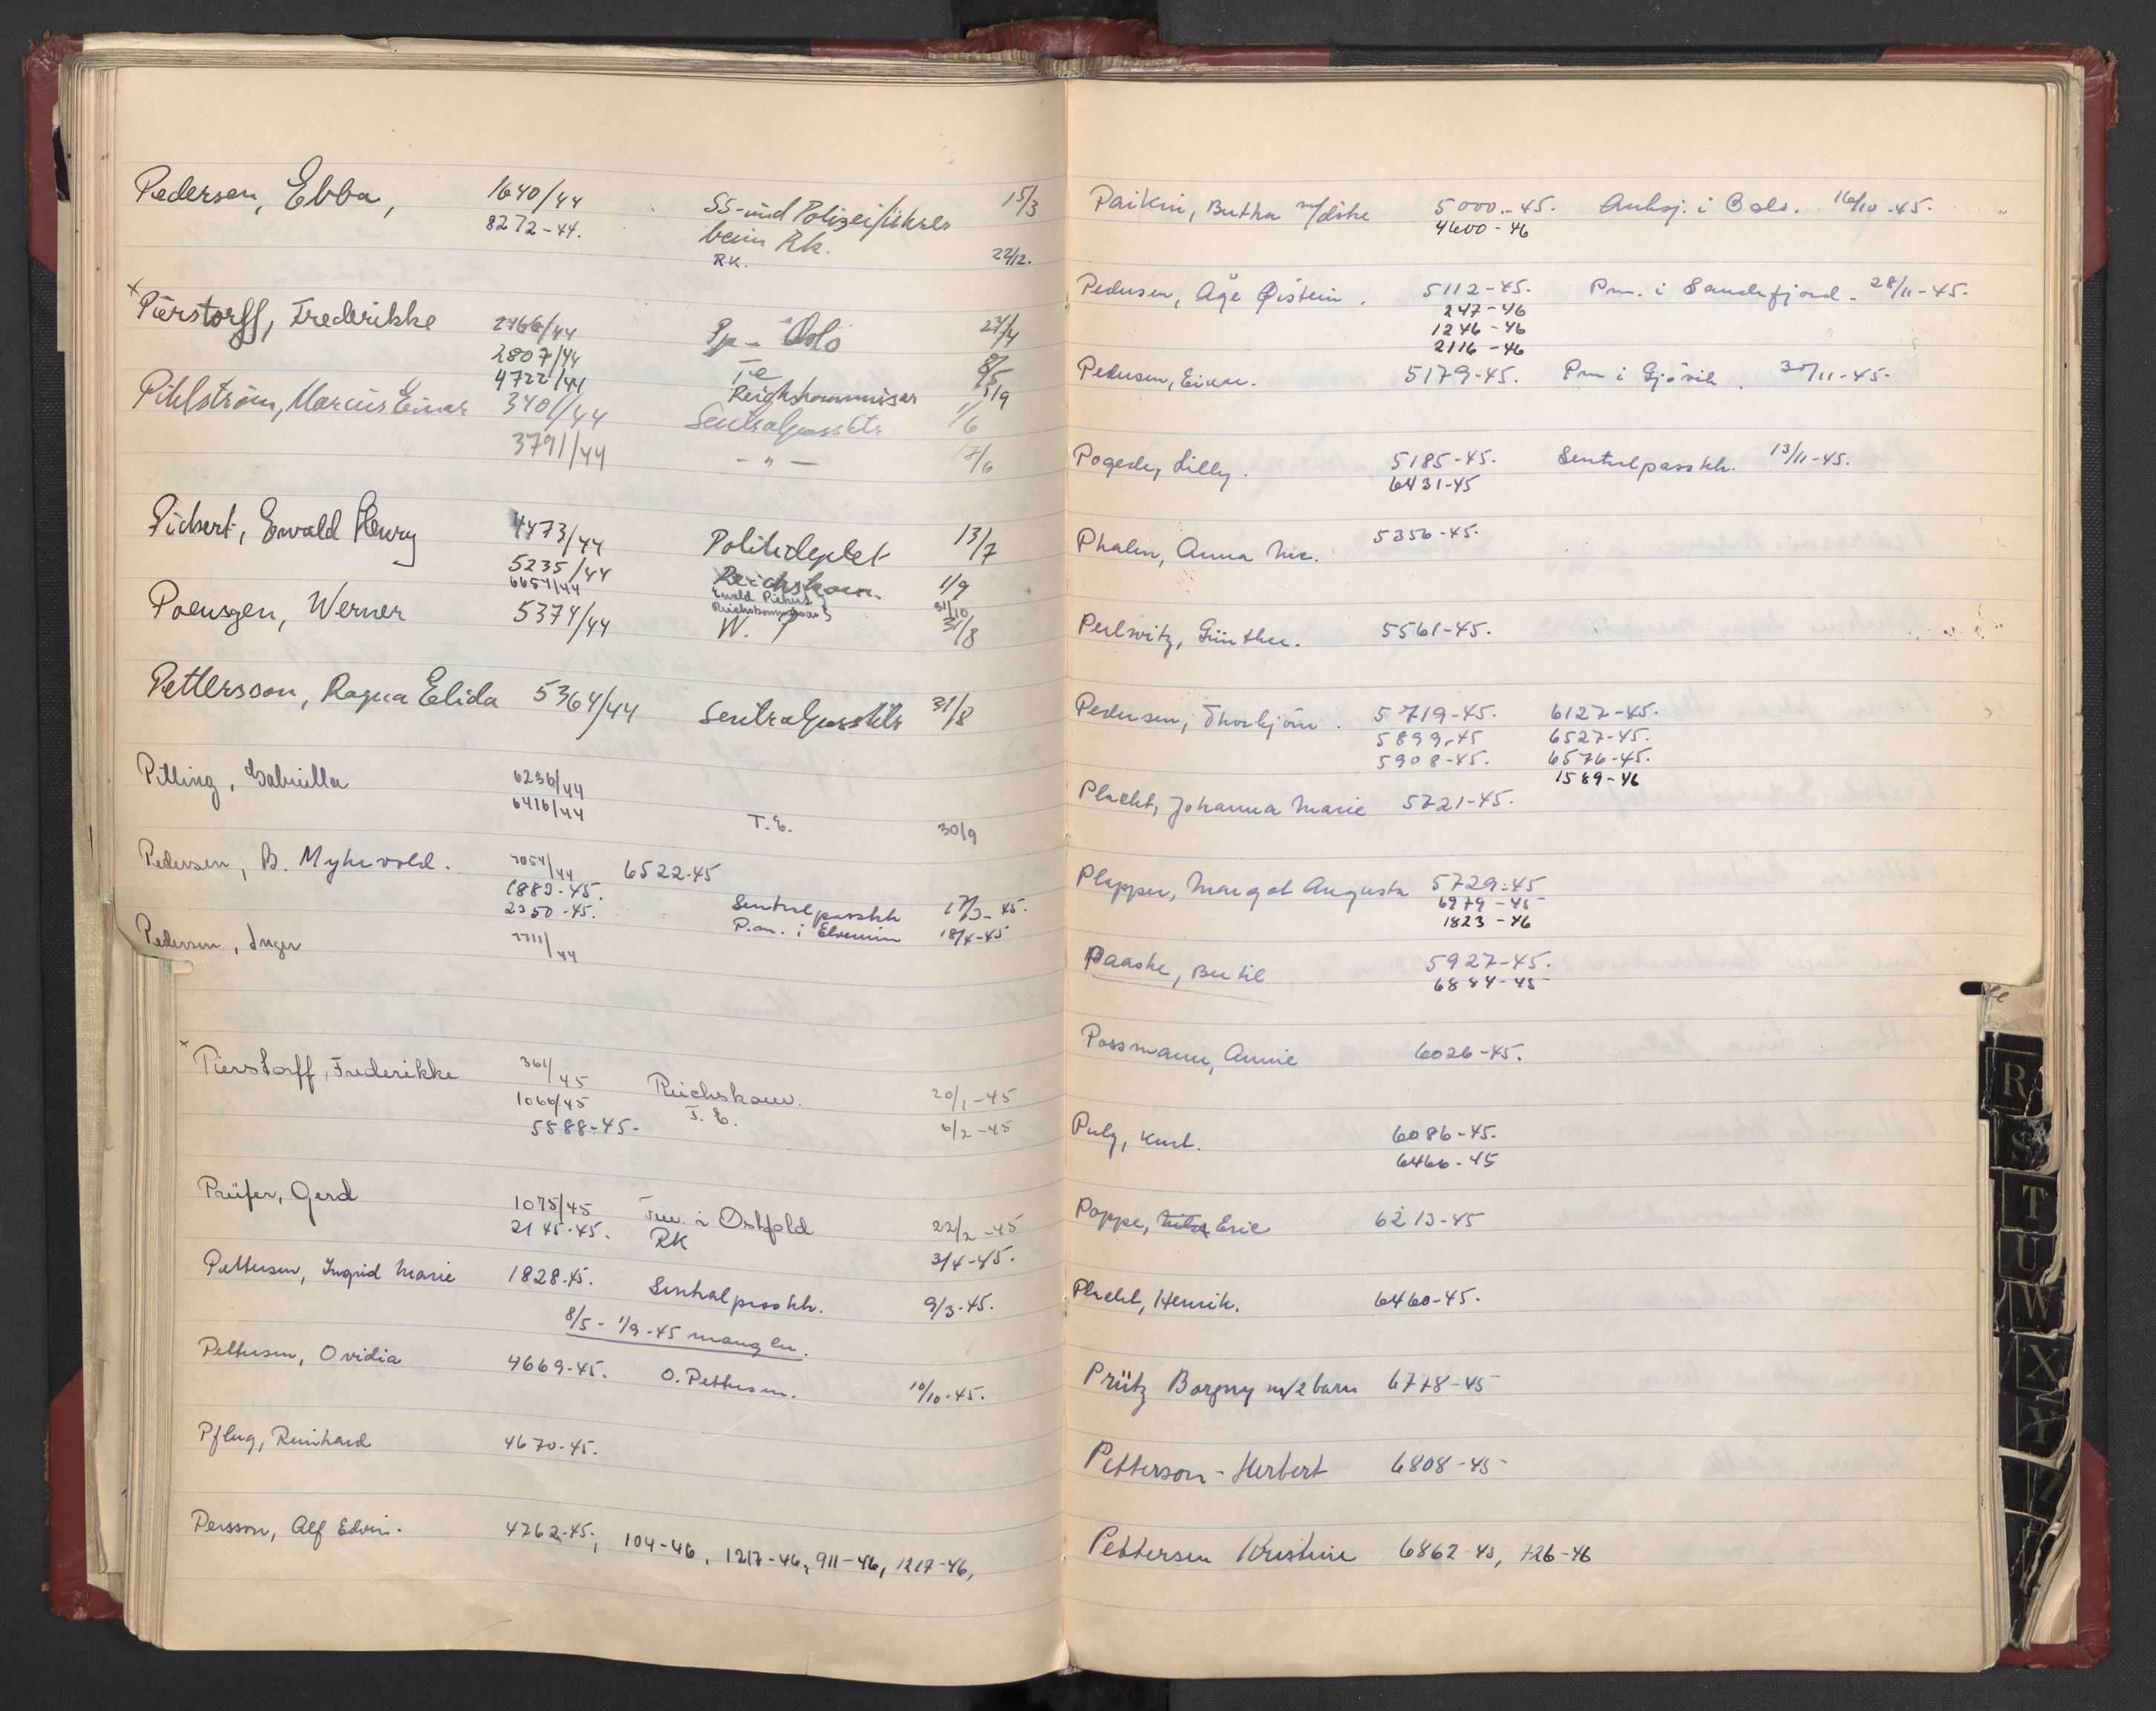 Pedersen, Ebba, 1640/44 SS-und Polizeiführer 15/3
8272-44. beim Rk.
RK. 22/12.
x Pierstorff, Frederikke 2466/44 Pp. - Oslo 24/4
2807/44 T.e 8/5
4722/44 Reichskommissar 1/9
Pihlström, Marcus Einar 3401/44 Sentralpassktr 1/6
3791/44 - " - 17/6
Pichert, Ewald Henry 4473/44 Politideptet 13/7
5235/44 Reichskom. 1/9
6654/44 Ewald Pichert } 31/10
Reichskommissar }
Poensgen, Werner 5374/44 W. P 31/8
Pettersson, Ragna Elida 5364/44 Sentralpassktr 31/8
Pitling, Gabriella 6236/44
6416/44 T.E. 30/9
Pedersen, B. Myhrvold. 7054/44 6522-45
1883-45. Sentralpassktr 17/3-45.
2350-45. P.m. i Elverum 18/4-45
Pedersen, Inger 7711/44
x Pierstorff, Frederikke 361/45 Reichskom. 20/1-45
1066/45 T.E. 6/2-45
5588-45-
Prüfer, Gerd 1075/45 Fm. i Østfold 22/2-45
2145-45. RK 3/4-45.
Pettersen, Ingrid Marie 1828-45. Sentralpassktr. 9/3-45.
8/5 - 1/9-45 mangler.
Pettersen, Ovidia 4669-45. O. Pettersen. 10/10-45.
Pflug, Reinhard 4670-45.
Persson, Alf Edvin. 4762-45; 104-46, 1217-46, 911-46, 1217-46,
Paikin, Bertha m/døtre 5000-45. Auksj. i Oslo. 16/10-45.
4600-46
Pedersen, Åge Øistein. 5112-45. Pm. i Sandefjord. 28/11-45.
247-46
1246-46
2116-46
Pedersen, Einar. 5179-45. Pm i Gjøvik. 30/11-45.
Pogede, Lilly. 5185-45. Sentralpassktr. 13/11-45.
6431-45
Phalen, Anna Nic. 5356-45.
Perlwitz, Günther. 5561-45.
Pedersen, Thorbjörn. 5719-45. 6127-45.
5899-45 6527-45.
5908-45. 6576-45.
1589-46
Placht, Johanna Marie 5721-45.
Plapper, Margot Augusta 5729-45
6979-45
1823-46
Paaske, Bertil 5927-45.
6844-45
Possmann, Annie 6026-45.
Pulz, Kurt. 6086-45.
6466-45
Poppe, Eric 6213-45
Placht, Henrik. 6460-45.
Prütz Borgny m/2 barn 6778-45
Petterson - Herbert 6808-45
Pettersen Kristine 6862-45, 726-46
R
S
T
U
W
X
Y
Z